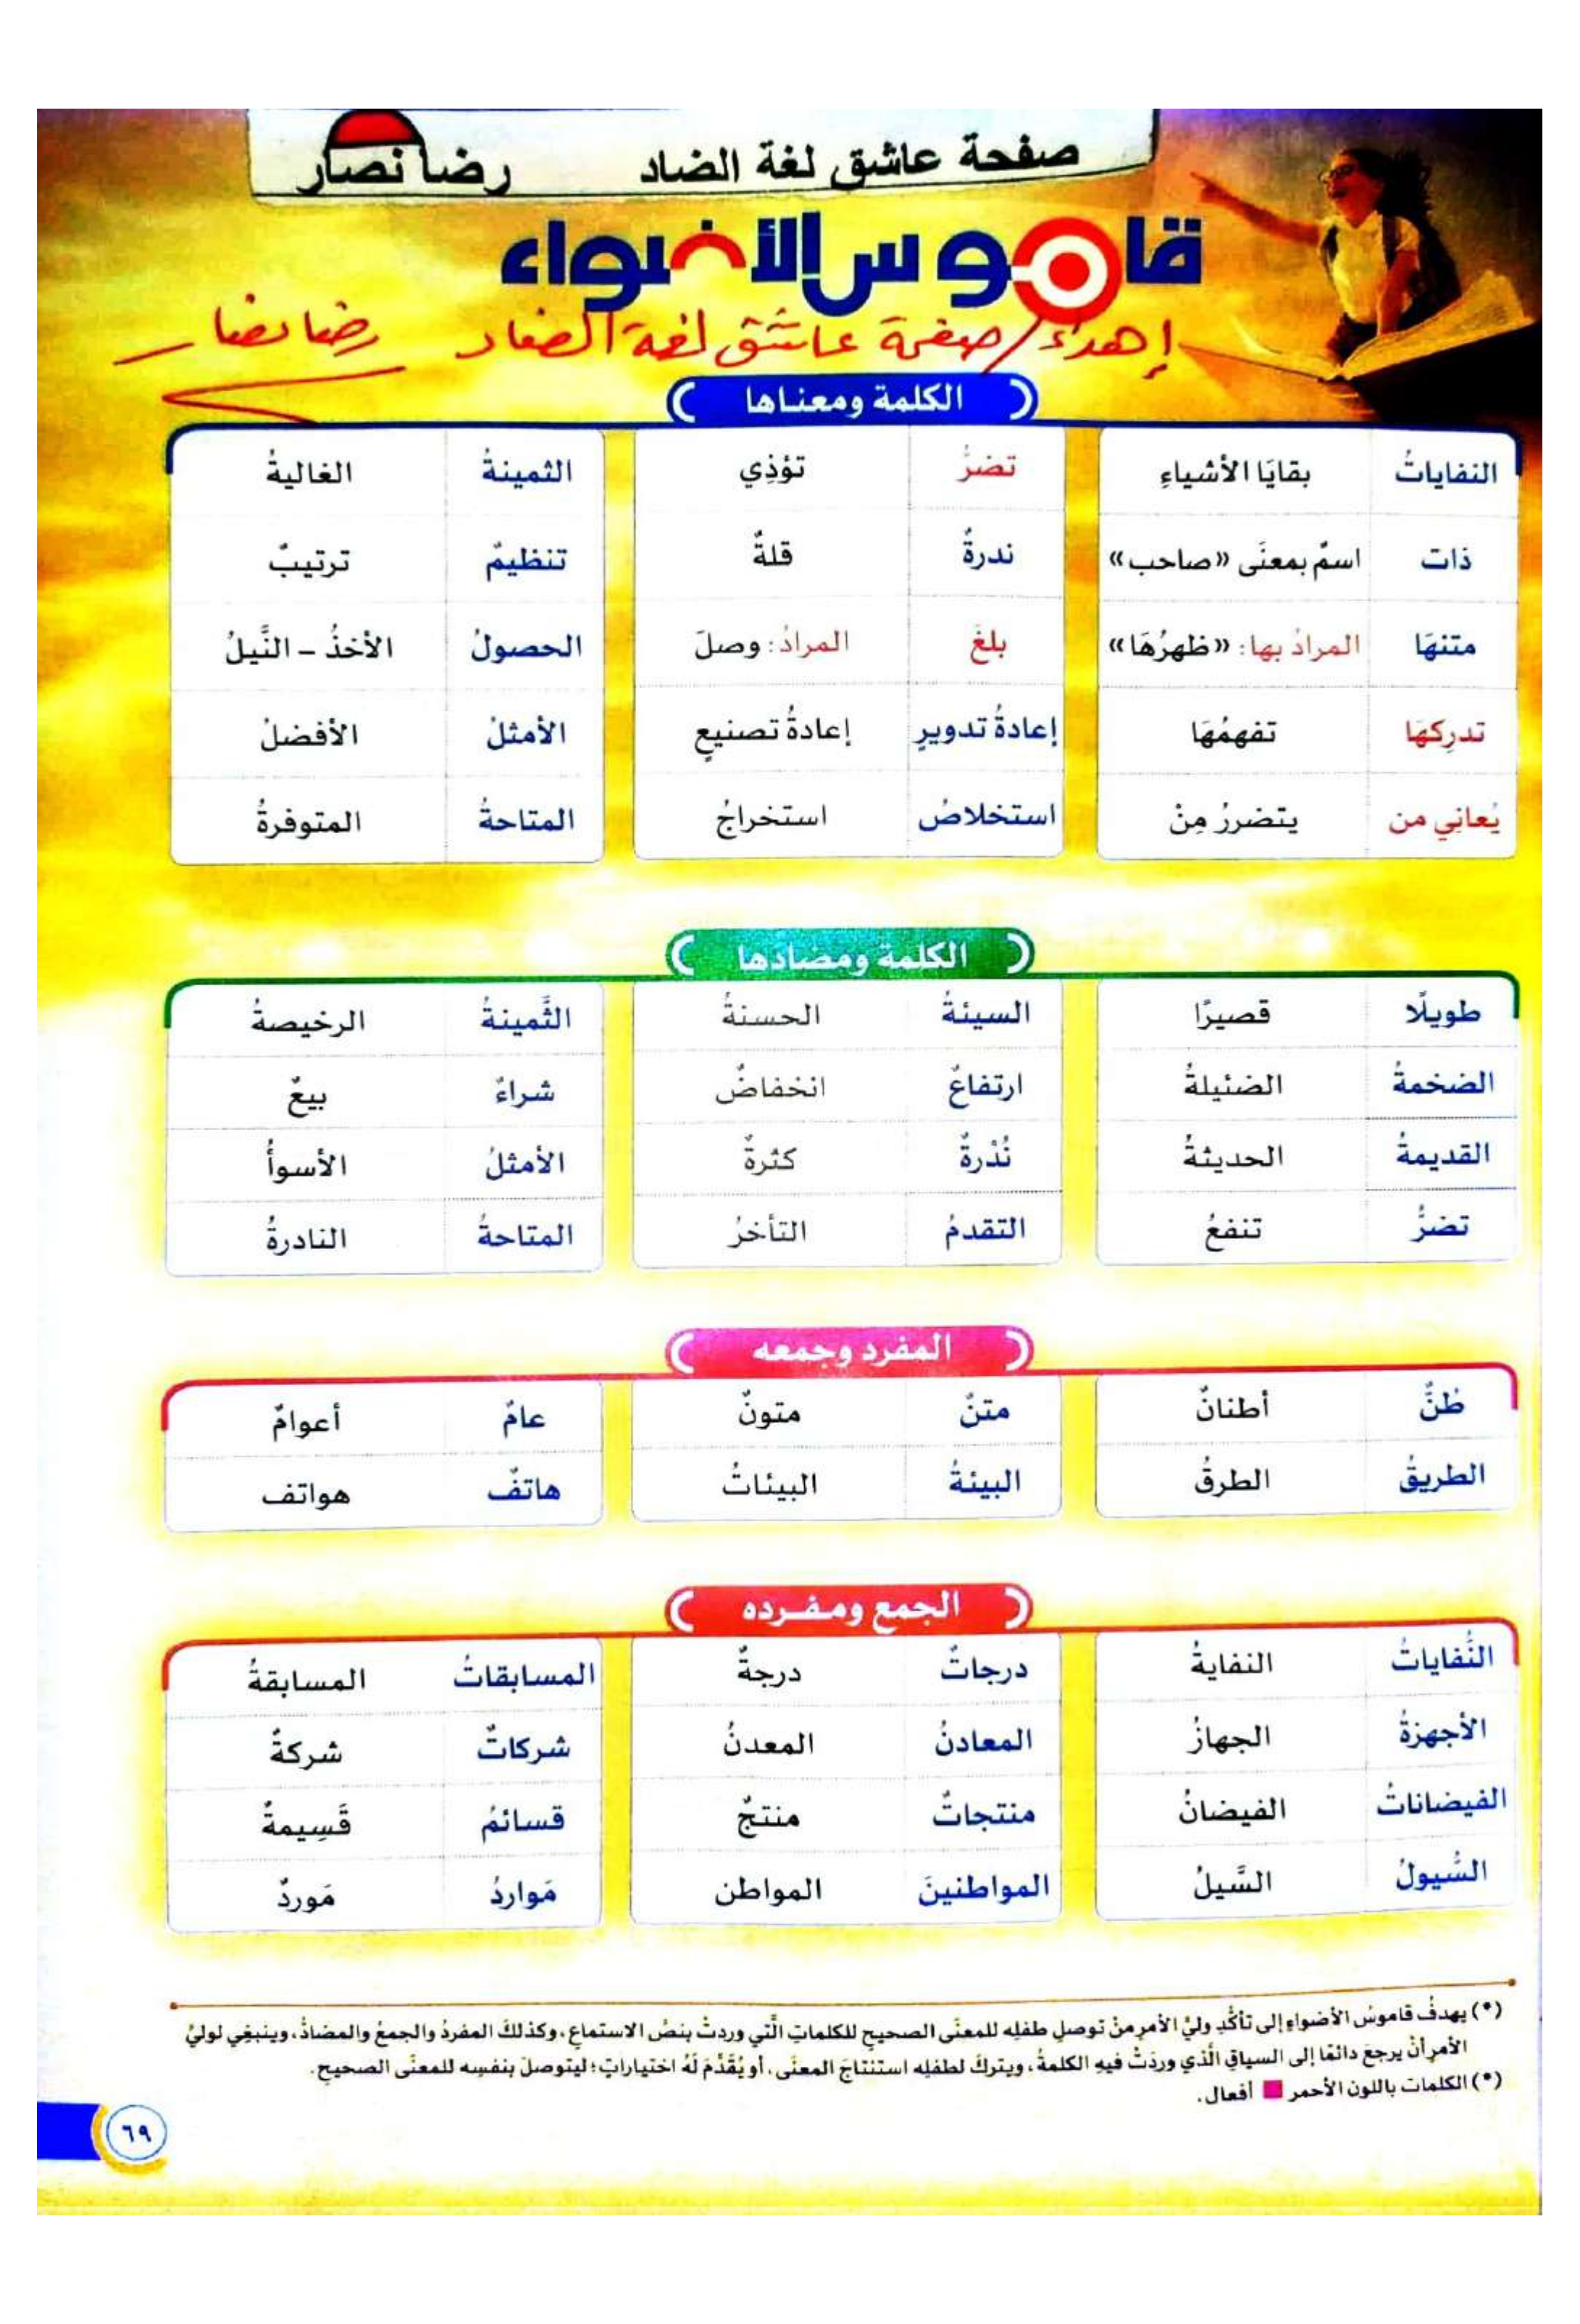 صفحة عاشق لغة الضاد رضا نصار
قاموس الأضواء
إهداء / صفحة عاشق لغة الضاد رضا نصار
الكلمة ومعناها
النفاياتُ بقايَا الأشياءِ تضرُّ تؤذِي الثمينةُ الغاليةُ
ذات اسمٌ بمعنَى «صاحب» ندرةٌ قلةٌ تنظيمٌ ترتيبٌ
متنهَا المرادُ بها: «ظهرُهَا» بلغَ المرادُ: وصلَ الحصولُ الأخذُ – النَّيلُ
تدرِكهَا تفهمُهَا إعادةُ تدويرٍ إعادةُ تصنيعٍ الأمثلُ الأفضلُ
يُعانِي من يتضررُ مِنْ استخلاصُ استخراجُ المتاحةُ المتوفرةُ
الكلمة ومضادها
طويلًا قصيرًا السيئةُ الحسنةُ الثَّمينةُ الرخيصةُ
الضخمةُ الضئيلةُ ارتفاعٌ انخفاضٌ شراءٌ بيعٌ
القديمةُ الحديثةُ نُدْرةٌ كثرةٌ الأمثلُ الأسوأُ
تضرُّ تنفعُ التقدمُ التأخرُ المتاحةُ النادرةُ
المفرد وجمعه
طُنٌّ أطنانٌ متنٌ متونٌ عامٌ أعوامٌ
الطريقُ الطرقُ البيئةُ البيئاتُ هاتفٌ هواتف
الجمع ومفرده
النُّفاياتُ النفايةُ درجاتٌ درجةٌ المسابقاتُ المسابقةُ
الأجهزةُ الجهازُ المعادنُ المعدنُ شركاتٌ شركةٌ
الفيضاناتُ الفيضانُ منتجاتٌ منتجٌ قسائمُ قَسِيمةٌ
السُّيولُ السَّيلُ المواطنينَ المواطن مَواردُ مَوردٌ
(*) يهدفُ قاموسُ الأضواءِ إلى تأكُّدِ وليِّ الأمرِ منْ توصلِ طفلِه للمعنَى الصحيحِ للكلماتِ الَّتي وردتْ بنصِّ الاستماعِ، وكذلكَ المفردُ والجمعُ والمضادُّ، وينبغِي لوليِّ
الأمرِ أنْ يرجعَ دائمًا إلى السياقِ الَّذي وردَتْ فيهِ الكلمةُ، ويتركَ لطفلِه استنتاجَ المعنَى، أو يُقَدِّمَ لَهُ اختياراتٍ؛ ليتوصلَ بنفسِه للمعنَى الصحيحِ.
(*) الكلمات باللون الأحمر أفعال.
٦٩